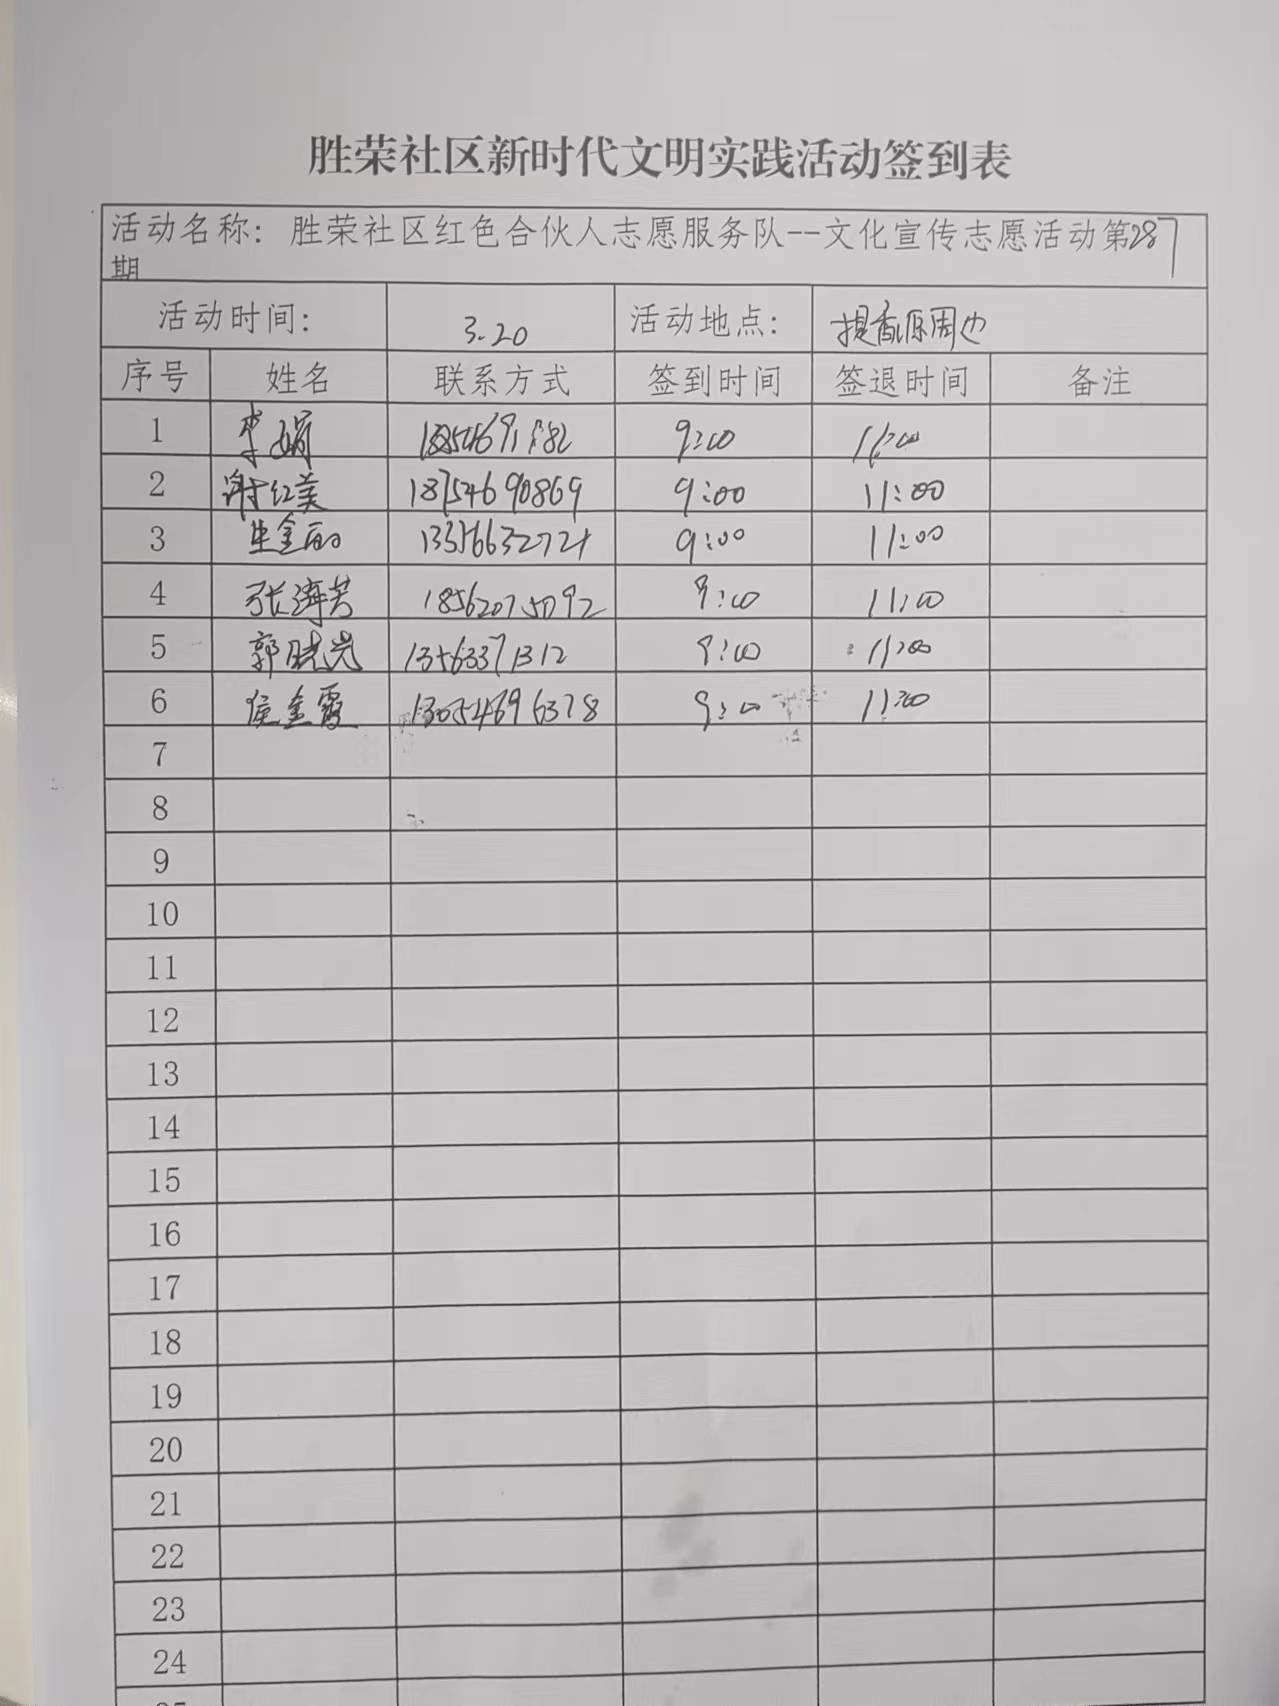 胜荣社区新时代文明实践活动签到表
活动名称：胜荣社区红色合伙人志愿服务队--文化宣传志愿活动第287
期
活动时间： 3.20 活动地点： 提香源周边
序号 姓名 联系方式 签到时间 签退时间 备注
1 李娟 9:00 11:00
2 谢红美 18754690869 9:00 11:00
3 生金丽 9:00 11:00
4 张海芳 9:00 11:00
5 郭晓岚 13563371312 9:00 11:00
6 侯金霞 13054696378 9:00 11:00
7
8
9
10
11
12
13
14
15
16
17
18
19
20
21
22
23
24